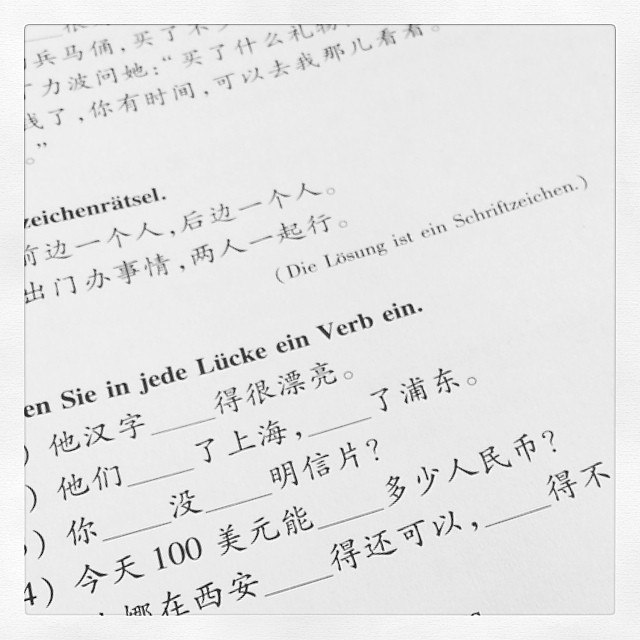 兵马俑，买了
力波问她：“买了什么礼物
了，你有时间，可以去我那儿看看。
。”
zeichenrätsel.
前边一个人，后边一个人。
出门办事情，两人一起行。
(Die Lösung ist ein Schriftzeichen.)
en Sie in jede Lücke ein Verb ein.
) 他汉字_____得很漂亮。
) 他们_____了上海，_____了浦东。
) 你_____没_____明信片？
4) 今天 100 美元能_____多少人民币？
娜在西安_____得还可以，_____得不